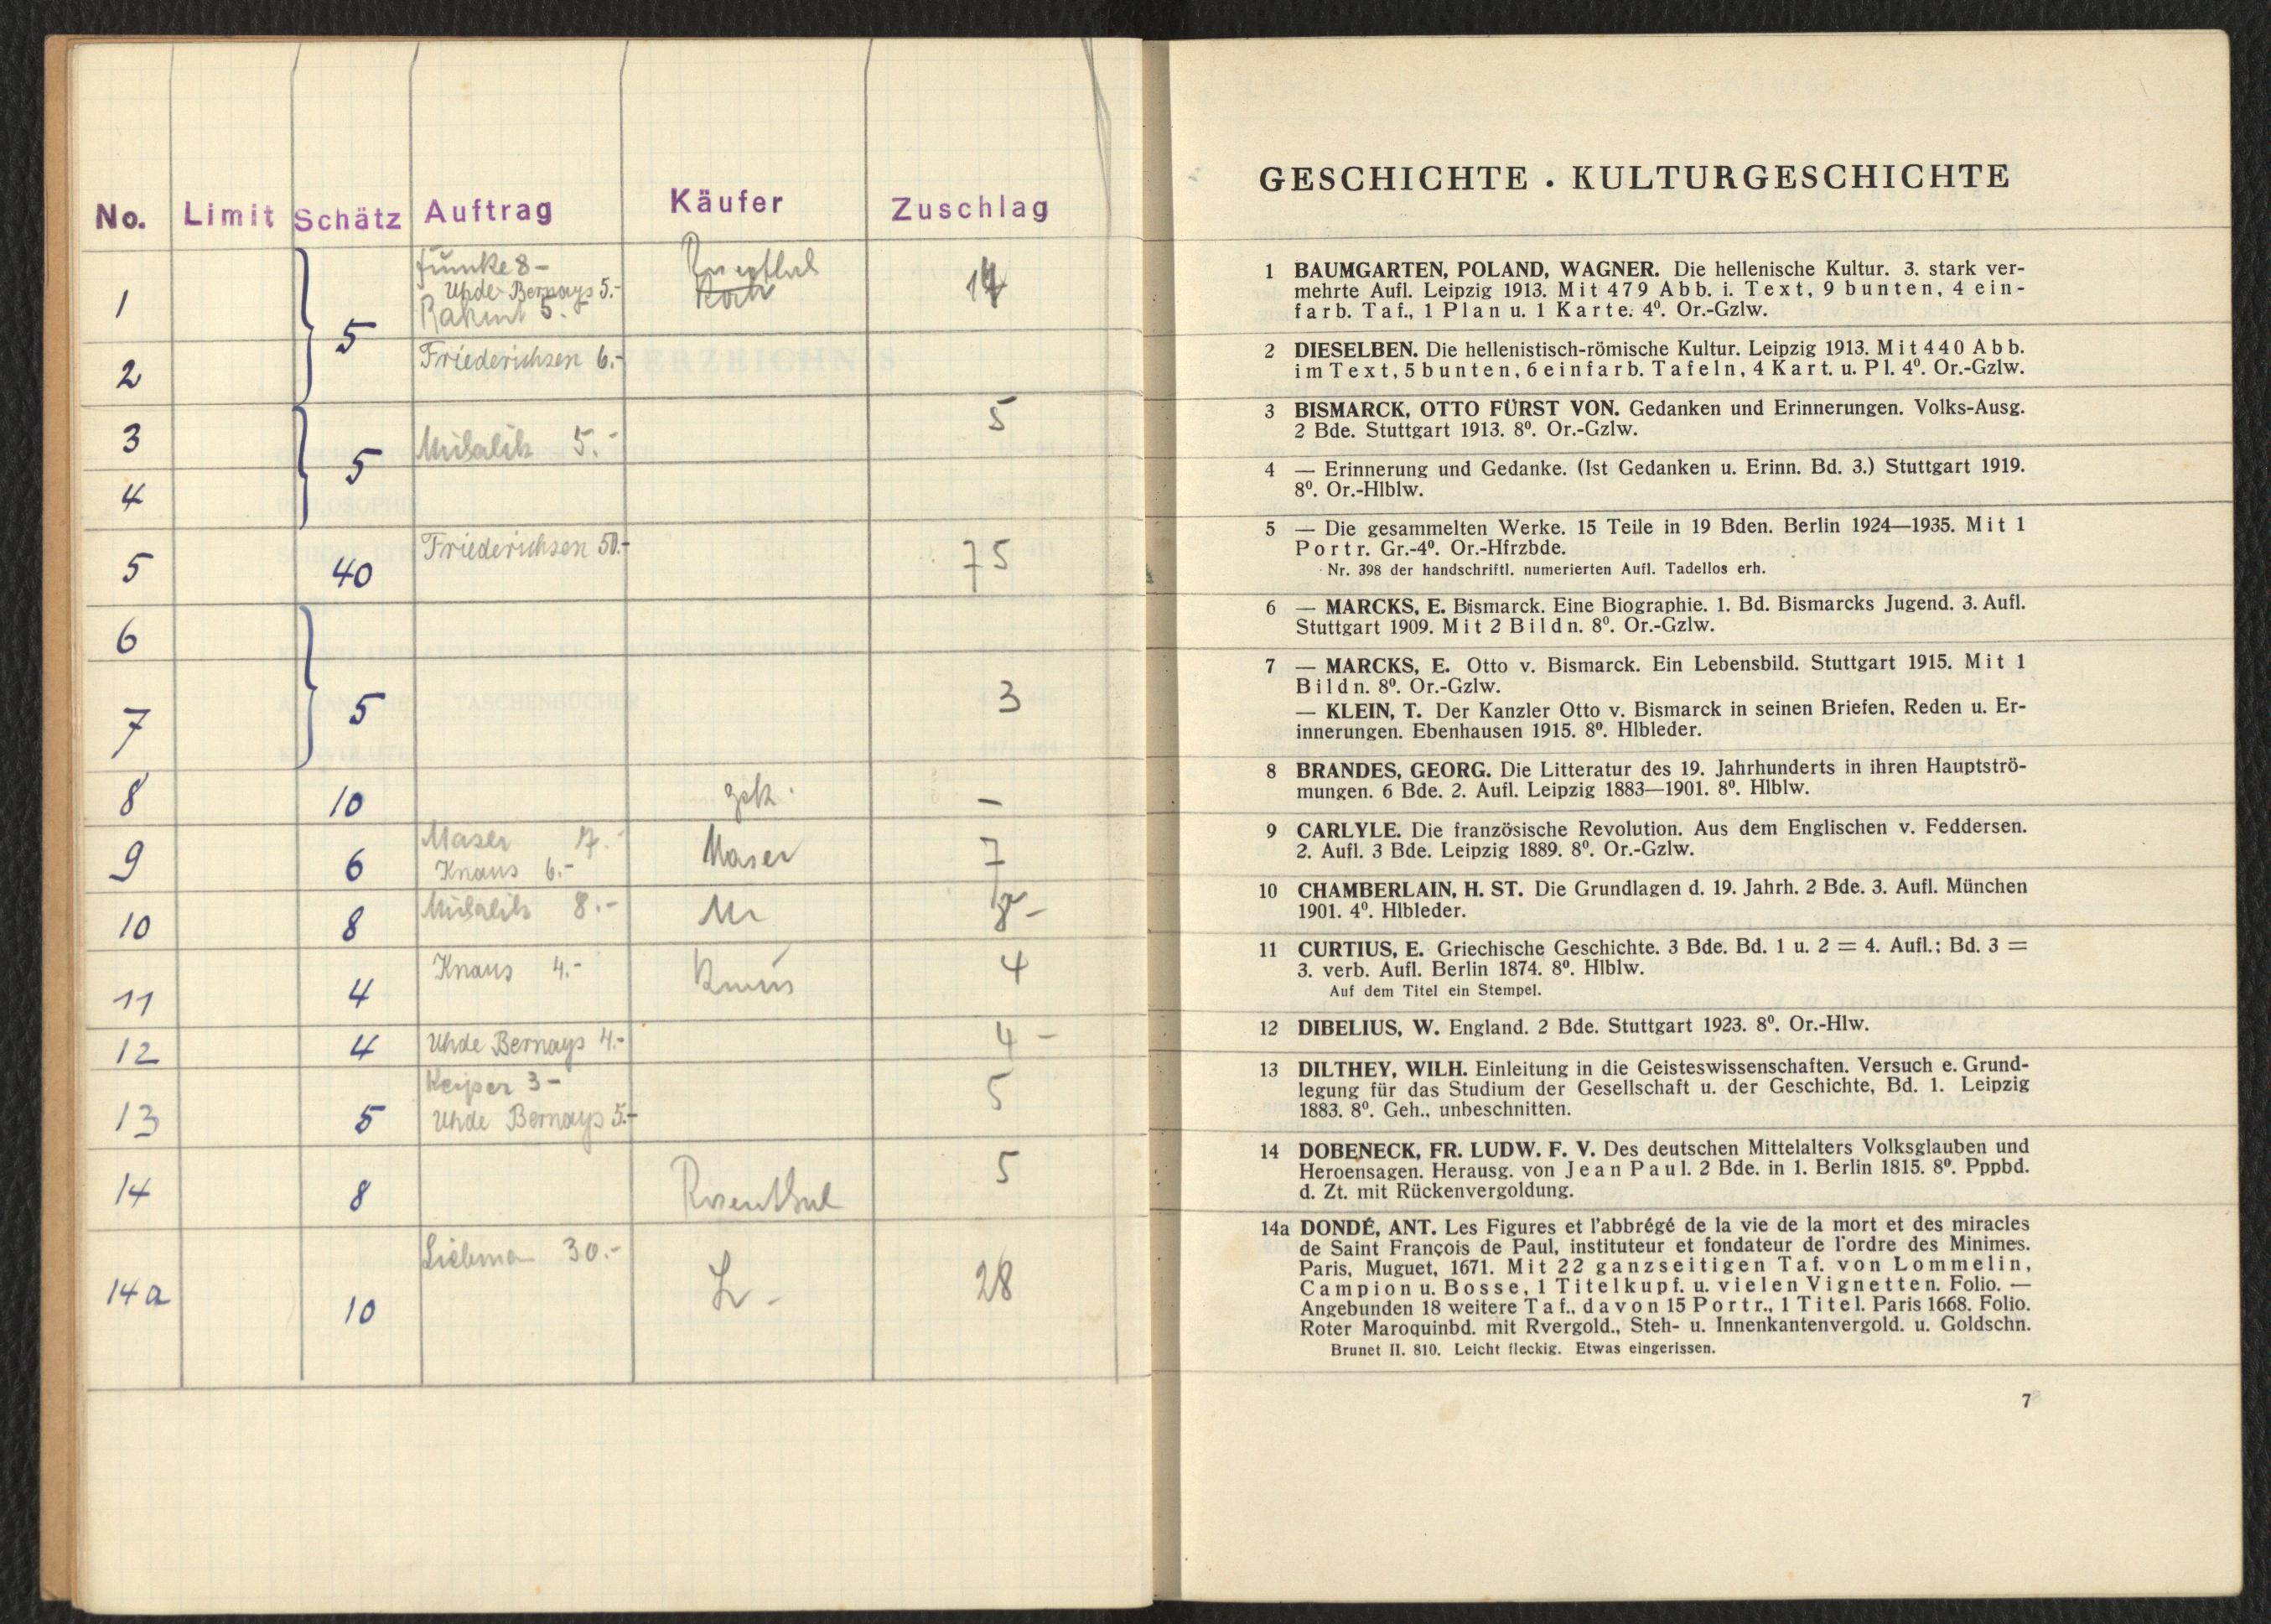 No. Limit Schätz Auftrag Käufer Zuschlag
1 5 Funke 8-
Uhde-Bernays 5.-
5.-
2 Friederichsen 6.-
3 5 Mihalik 5.- 5
4
5 40 Friederichsen 50.- 75
6
7 5 3
8 10 zck. -
9 6 Maser 7.- Maser 7
Knaus 6.-
10 8 Mihalik 8.- 8-
11 4 Knaus 4.- Knaus 4
12 4 Uhde Bernays 4.- 4 -
13 5 Keiper 3- 5
Uhde Bernays 5.-
14 8 Rosenthal 5
14a 10 30.- L. - 28
GESCHICHTE . KULTURGESCHICHTE
1 BAUMGARTEN, POLAND, WAGNER. Die hellenische Kultur. 3. stark ver-
mehrte Aufl. Leipzig 1913. Mit 479 Abb. i. Text, 9 bunten, 4 ein-
farb. Taf., 1 Plan u. 1 Karte. 4⁰. Or.-Gzlw.
2 DIESELBEN. Die hellenistisch-römische Kultur. Leipzig 1913. Mit 440 Abb.
im Text, 5 bunten, 6 einfarb. Tafeln, 4 Kart. u. Pl. 4⁰. Or.-Gzlw.
3 BISMARCK, OTTO FÜRST VON. Gedanken und Erinnerungen. Volks-Ausg.
2 Bde. Stuttgart 1913. 8⁰. Or.-Gzlw.
4 — Erinnerung und Gedanke. (Ist Gedanken u. Erinn. Bd. 3.) Stuttgart 1919.
8⁰. Or.-Hlblw.
5 — Die gesammelten Werke. 15 Teile in 19 Bden. Berlin 1924—1935. Mit 1
Portr. Gr.-4⁰. Or.-Hfrzbde.
Nr. 398 der handschriftl. numerierten Aufl. Tadellos erh.
6 — MARCKS, E. Bismarck. Eine Biographie. 1. Bd. Bismarcks Jugend. 3. Aufl.
Stuttgart 1909. Mit 2 Bildn. 8⁰. Or.-Gzlw.
7 — MARCKS, E. Otto v. Bismarck. Ein Lebensbild. Stuttgart 1915. Mit 1
Bildn. 8⁰. Or.-Gzlw.
— KLEIN, T. Der Kanzler Otto v. Bismarck in seinen Briefen, Reden u. Er-
innerungen. Ebenhausen 1915. 8⁰. Hlbleder.
8 BRANDES, GEORG. Die Litteratur des 19. Jahrhunderts in ihren Hauptströ-
mungen. 6 Bde. 2. Aufl. Leipzig 1883—1901. 8⁰. Hlblw.
9 CARLYLE. Die französische Revolution. Aus dem Englischen v. Feddersen.
2. Aufl. 3 Bde. Leipzig 1889. 8⁰. Or.-Gzlw.
10 CHAMBERLAIN, H. ST. Die Grundlagen d. 19. Jahrh. 2 Bde. 3. Aufl. München
1901. 4⁰. Hlbleder.
11 CURTIUS, E. Griechische Geschichte. 3 Bde. Bd. 1 u. 2 = 4. Aufl.; Bd. 3 =
3. verb. Aufl. Berlin 1874. 8⁰. Hlblw.
Auf dem Titel ein Stempel.
12 DIBELIUS, W. England. 2 Bde. Stuttgart 1923. 8⁰. Or.-Hlw.
13 DILTHEY, WILH. Einleitung in die Geisteswissenschaften. Versuch e. Grund-
legung für das Studium der Gesellschaft u. der Geschichte, Bd. 1. Leipzig
1883. 8⁰. Geh., unbeschnitten.
14 DOBENECK, FR. LUDW. F. V. Des deutschen Mittelalters Volksglauben und
Heroensagen. Herausg. von Jean Paul. 2 Bde. in 1. Berlin 1815. 8⁰. Pppbd.
d. Zt. mit Rückenvergoldung.
14a DONDÉ, ANT. Les Figures et l'abbrégé de la vie de la mort et des miracles
de Saint François de Paul, instituteur et fondateur de l'ordre des Minimes.
Paris, Muguet, 1671. Mit 22 ganzseitigen Taf. von Lommelin,
Campion u. Bosse, 1 Titelkupf. u. vielen Vignetten. Folio. —
Angebunden 18 weitere Taf., davon 15 Portr., 1 Titel. Paris 1668. Folio.
Roter Maroquinbd. mit Rvergold., Steh- u. Innenkantenvergold. u. Goldschn.
Brunet II. 810. Leicht fleckig. Etwas eingerissen.
7